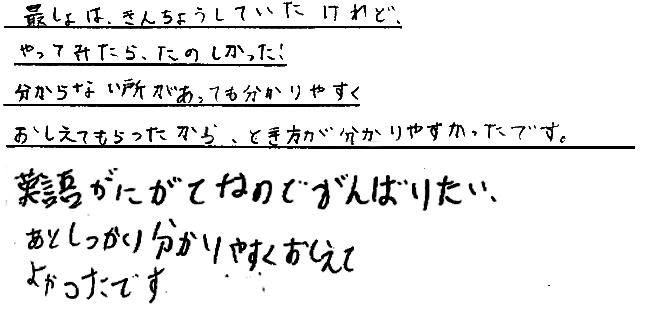 最しょは、きんちょうしていたけれど、
やってみたら、たのしかった!
分からない所があっても分かりやすく
おしえてもらったから、とき方が分かりやすかったです。
英語がにがてなのでがんばりたい、
あとしっかり分かりやすくおしえて
よかったです